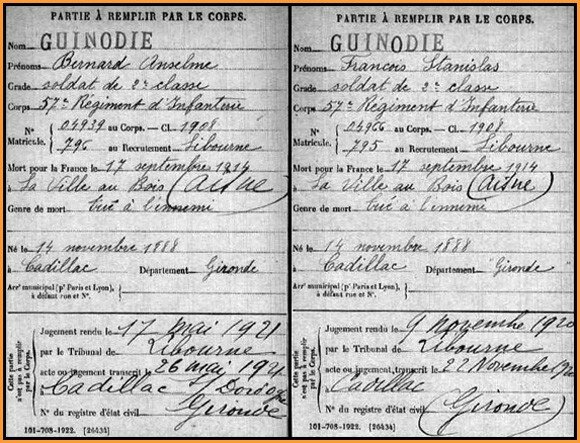 PARTIE À REMPLIR PAR LE CORPS.
Nom GUINODIE
Prénoms Bernard Anselme
Grade soldat de 2e classe
Corps 57e Régiment d'Infanterie
No 04939 au Corps. — Cl. 1908
Matricule. 796 au Recrutement Libourne
Mort pour la France le 17 septembre 1914
à La Ville au Bois (Aisne)
Genre de mort tué à l'ennemi
Né le 14 novembre 1888
à Cadillac Département Gironde
Arrt municipal (pr Paris et Lyon),
à défaut rue et No.
Cette partie
n'est pas à remplir
par le Corps.
Jugement rendu le 17 Mai 1921
par le Tribunal de Libourne
acte ou jugement transcrit le 26 mai 192
à Cadillac s/ Dordogne
Gironde
No du registre d'état civil
101-708-1922. [26434]
PARTIE À REMPLIR PAR LE CORPS.
Nom GUINODIE
Prénoms Francois Stanislas
Grade soldat de 2e classe
Corps 57e Régiment d'Infanterie
No 04966 au Corps. — Cl. 1908
Matricule. 795 au Recrutement Libourne
Mort pour la France le 17 septembre 1914
à La Ville au Bois (Aisne)
Genre de mort tué à l'ennemi
Né le 14 novembre 1888
à Cadillac Département Gironde
Arrt municipal (pr Paris et Lyon),
à défaut rue et No.
Cette partie
n'est pas à remplir
par le Corps.
Jugement rendu le 9 Novembre 1920
par le Tribunal de Libourne
acte ou jugement transcrit le 22 Novembre 192
à Cadillac
(Gironde)
No du registre d'état civil
101-708-1922. [26434]